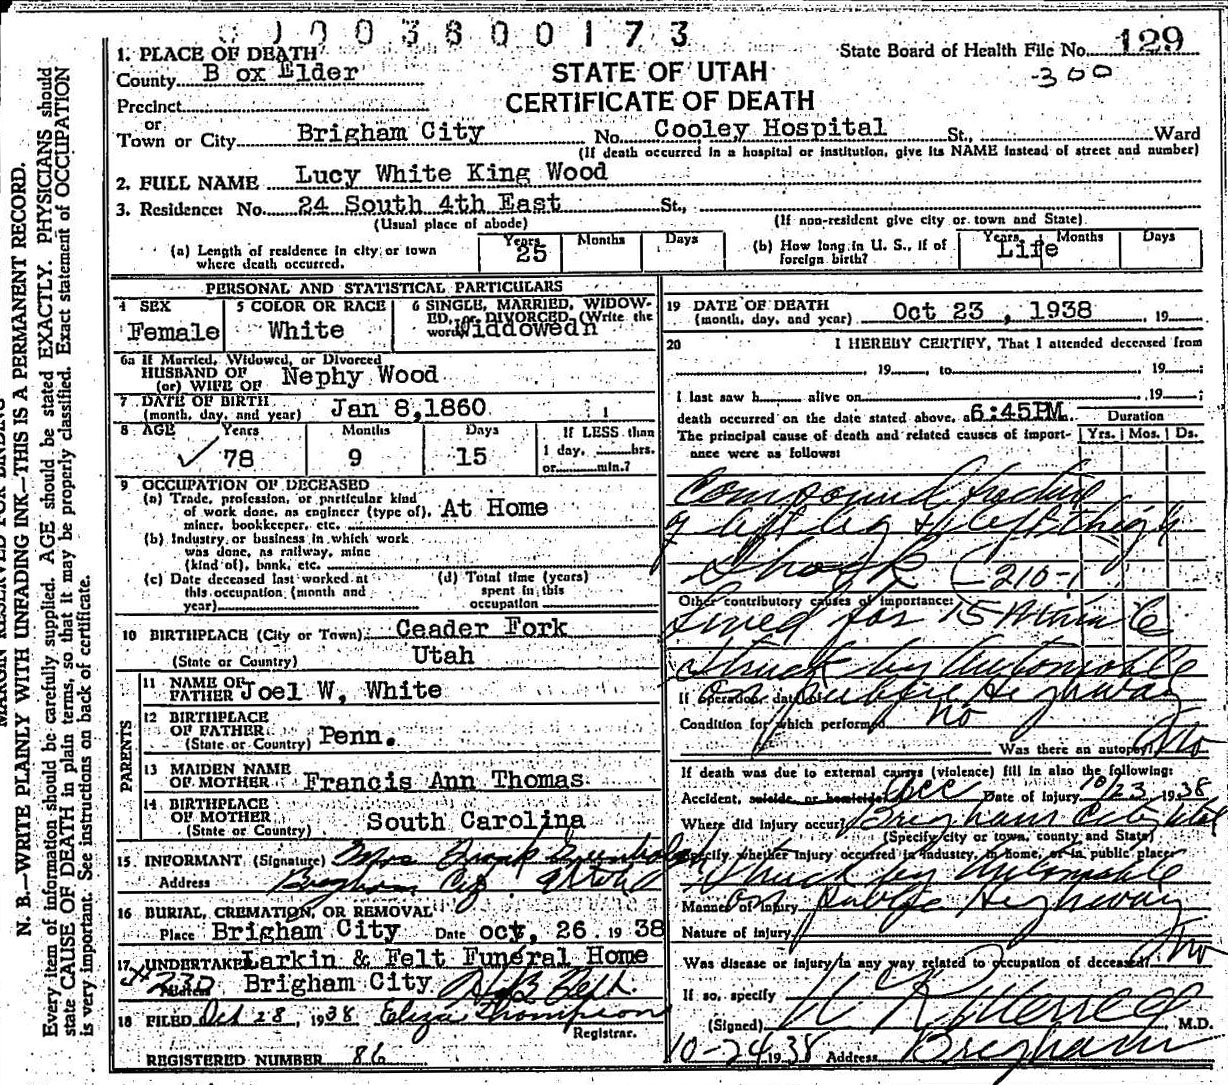 0 1 0 0 3 8 0 0 1 7 3
State Board of Health File No. 129
-300
1. PLACE OF DEATH
County Box Elder
STATE OF UTAH
CERTIFICATE OF DEATH
Precinct
or
Town or City Brigham City No. Cooley Hospital St., Ward
(If death occurred in a hospital or institution, give its NAME instead of street and number)
2. FULL NAME Lucy White King Wood
3. Residence: No. 24 South 4th East St.,
(Usual place of abode) (If non-resident give city or town and State)
(a) Length of residence in city or town where death occurred. Years 25 Months Days
(b) How long in U. S., if of foreign birth? Years Months Days Life
PERSONAL AND STATISTICAL PARTICULARS
4 SEX Female
5 COLOR OR RACE White
6 SINGLE, MARRIED, WIDOWED, or DIVORCED (Write the word) Widdowedn
6a If Married, Widowed, or Divorced
HUSBAND OF
(or) WIFE OF Nephy Wood
7 DATE OF BIRTH
(month, day, and year) Jan 8,1860
8 AGE Years Months Days If LESS than
78 9 15 1 day, hrs.
or min.?
9 OCCUPATION OF DECEASED
(a) Trade, profession, or particular kind
of work done, as engineer (type of), At Home
miner, bookkeeper, etc.
(b) Industry or business in which work
was done, as railway, mine
(kind of), bank, etc.
(c) Date deceased last worked at this occupation (month and year)
(d) Total time (years) spent in this occupation
10 BIRTHPLACE (City or Town) Ceader Fork
(State or Country) Utah
PARENTS
11 NAME OF FATHER Joel W, White
12 BIRTHPLACE OF FATHER Penn.
(State or Country)
13 MAIDEN NAME OF MOTHER Francis Ann Thomas
14 BIRTHPLACE OF MOTHER South Carolina
(State or Country)
15 INFORMANT (Signature) Mrs Frank
Address Brigham City Utah
16 BURIAL, CREMATION, OR REMOVAL
Place Brigham City Date oct, 26. 19 38
17 UNDERTAKER Larkin & Felt Funeral Home
Address Brigham City
18 FILED Oct 28, 1938 Eliza Thompson
Registrar.
REGISTERED NUMBER 86
19 DATE OF DEATH
(month, day, and year) Oct 23 , 1938 , 19
20 I HEREBY CERTIFY, That I attended deceased from
, 19 , to , 19 ;
I last saw h alive on , 19 ;
death occurred on the date stated above, a 6:45PM. Duration
The principal cause of death and related causes of importance were as follows: Yrs. Mos. Ds.
Compound fracture
of left leg & left thigh
Shock (210-1
Other contributory causes of importance:
Lived for 15 Minute
Struck by Automobile
On Public Highway
If operation, date of
Condition for which performed no
Was there an autopsy? No
If death was due to external causes (violence) fill in also the following:
Accident, suicide, or homicide Acc Date of injury 10/23 1938
Where did injury occur? Brigham City Utah
(Specify city or town, county and State)
Specify whether injury occurred in industry, in home, or in public place
Struck by Automobile
Manner of injury on Public Highway
Nature of injury
Was disease or injury in any way related to occupation of deceased? No
If so, specify
(Signed) , M.D.
10-24 1938 Address Brigham
MARGIN RESERVED FOR BINDING
N. B.—WRITE PLAINLY WITH UNFADING INK—THIS IS A PERMANENT RECORD.
Every item of information should be carefully supplied. AGE should be stated EXACTLY. PHYSICIANS should
state CAUSE OF DEATH in plain terms, so that it may be properly classified. Exact statement of OCCUPATION
is very important. See instructions on back of certificate.